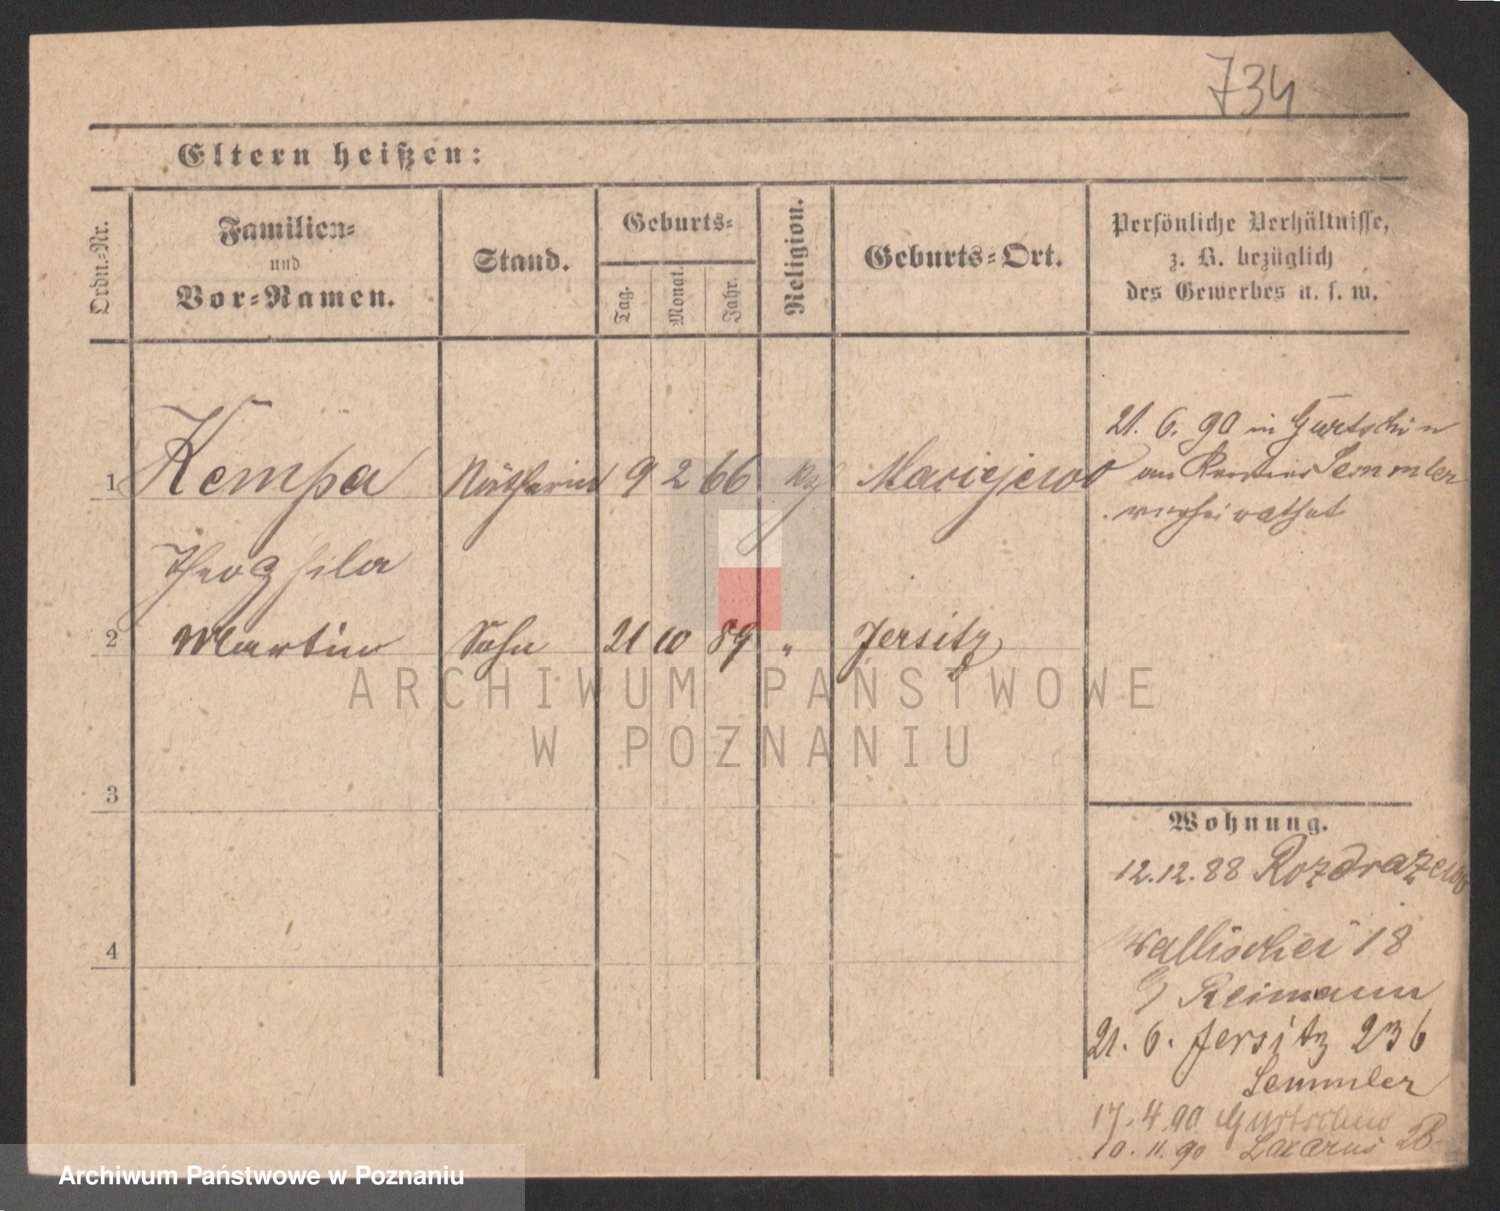 734
Eltern heißen:
Ordn.-Nr.
Familien-
und
Vor-Namen.
Stand.
Geburts-
Tag.
Monat.
Jahr.
Religion.
Geburts-Ort.
Persönliche Verhältnisse,
z. B. bezüglich
des Gewerbes u. s. w.
1 Kempa Nätherin 9 2 66 Maciejewo
Theophila
21. 6. 90 in Gurtschin
Semmler
verheirathet
2 Martin Sohn 21 10 89 " Jersitz
3
4
Wohnung.
12.12.88 Rozdrazewo
Wallischei 18
Reimann
21. 6. Jersitz 236
Semmler
17. 4. 90 Gurtschin
10. 11. 90 Lazarus
ARCHIWUM PAŃSTWOWE
W POZNANIU
Archiwum Państwowe w Poznaniu